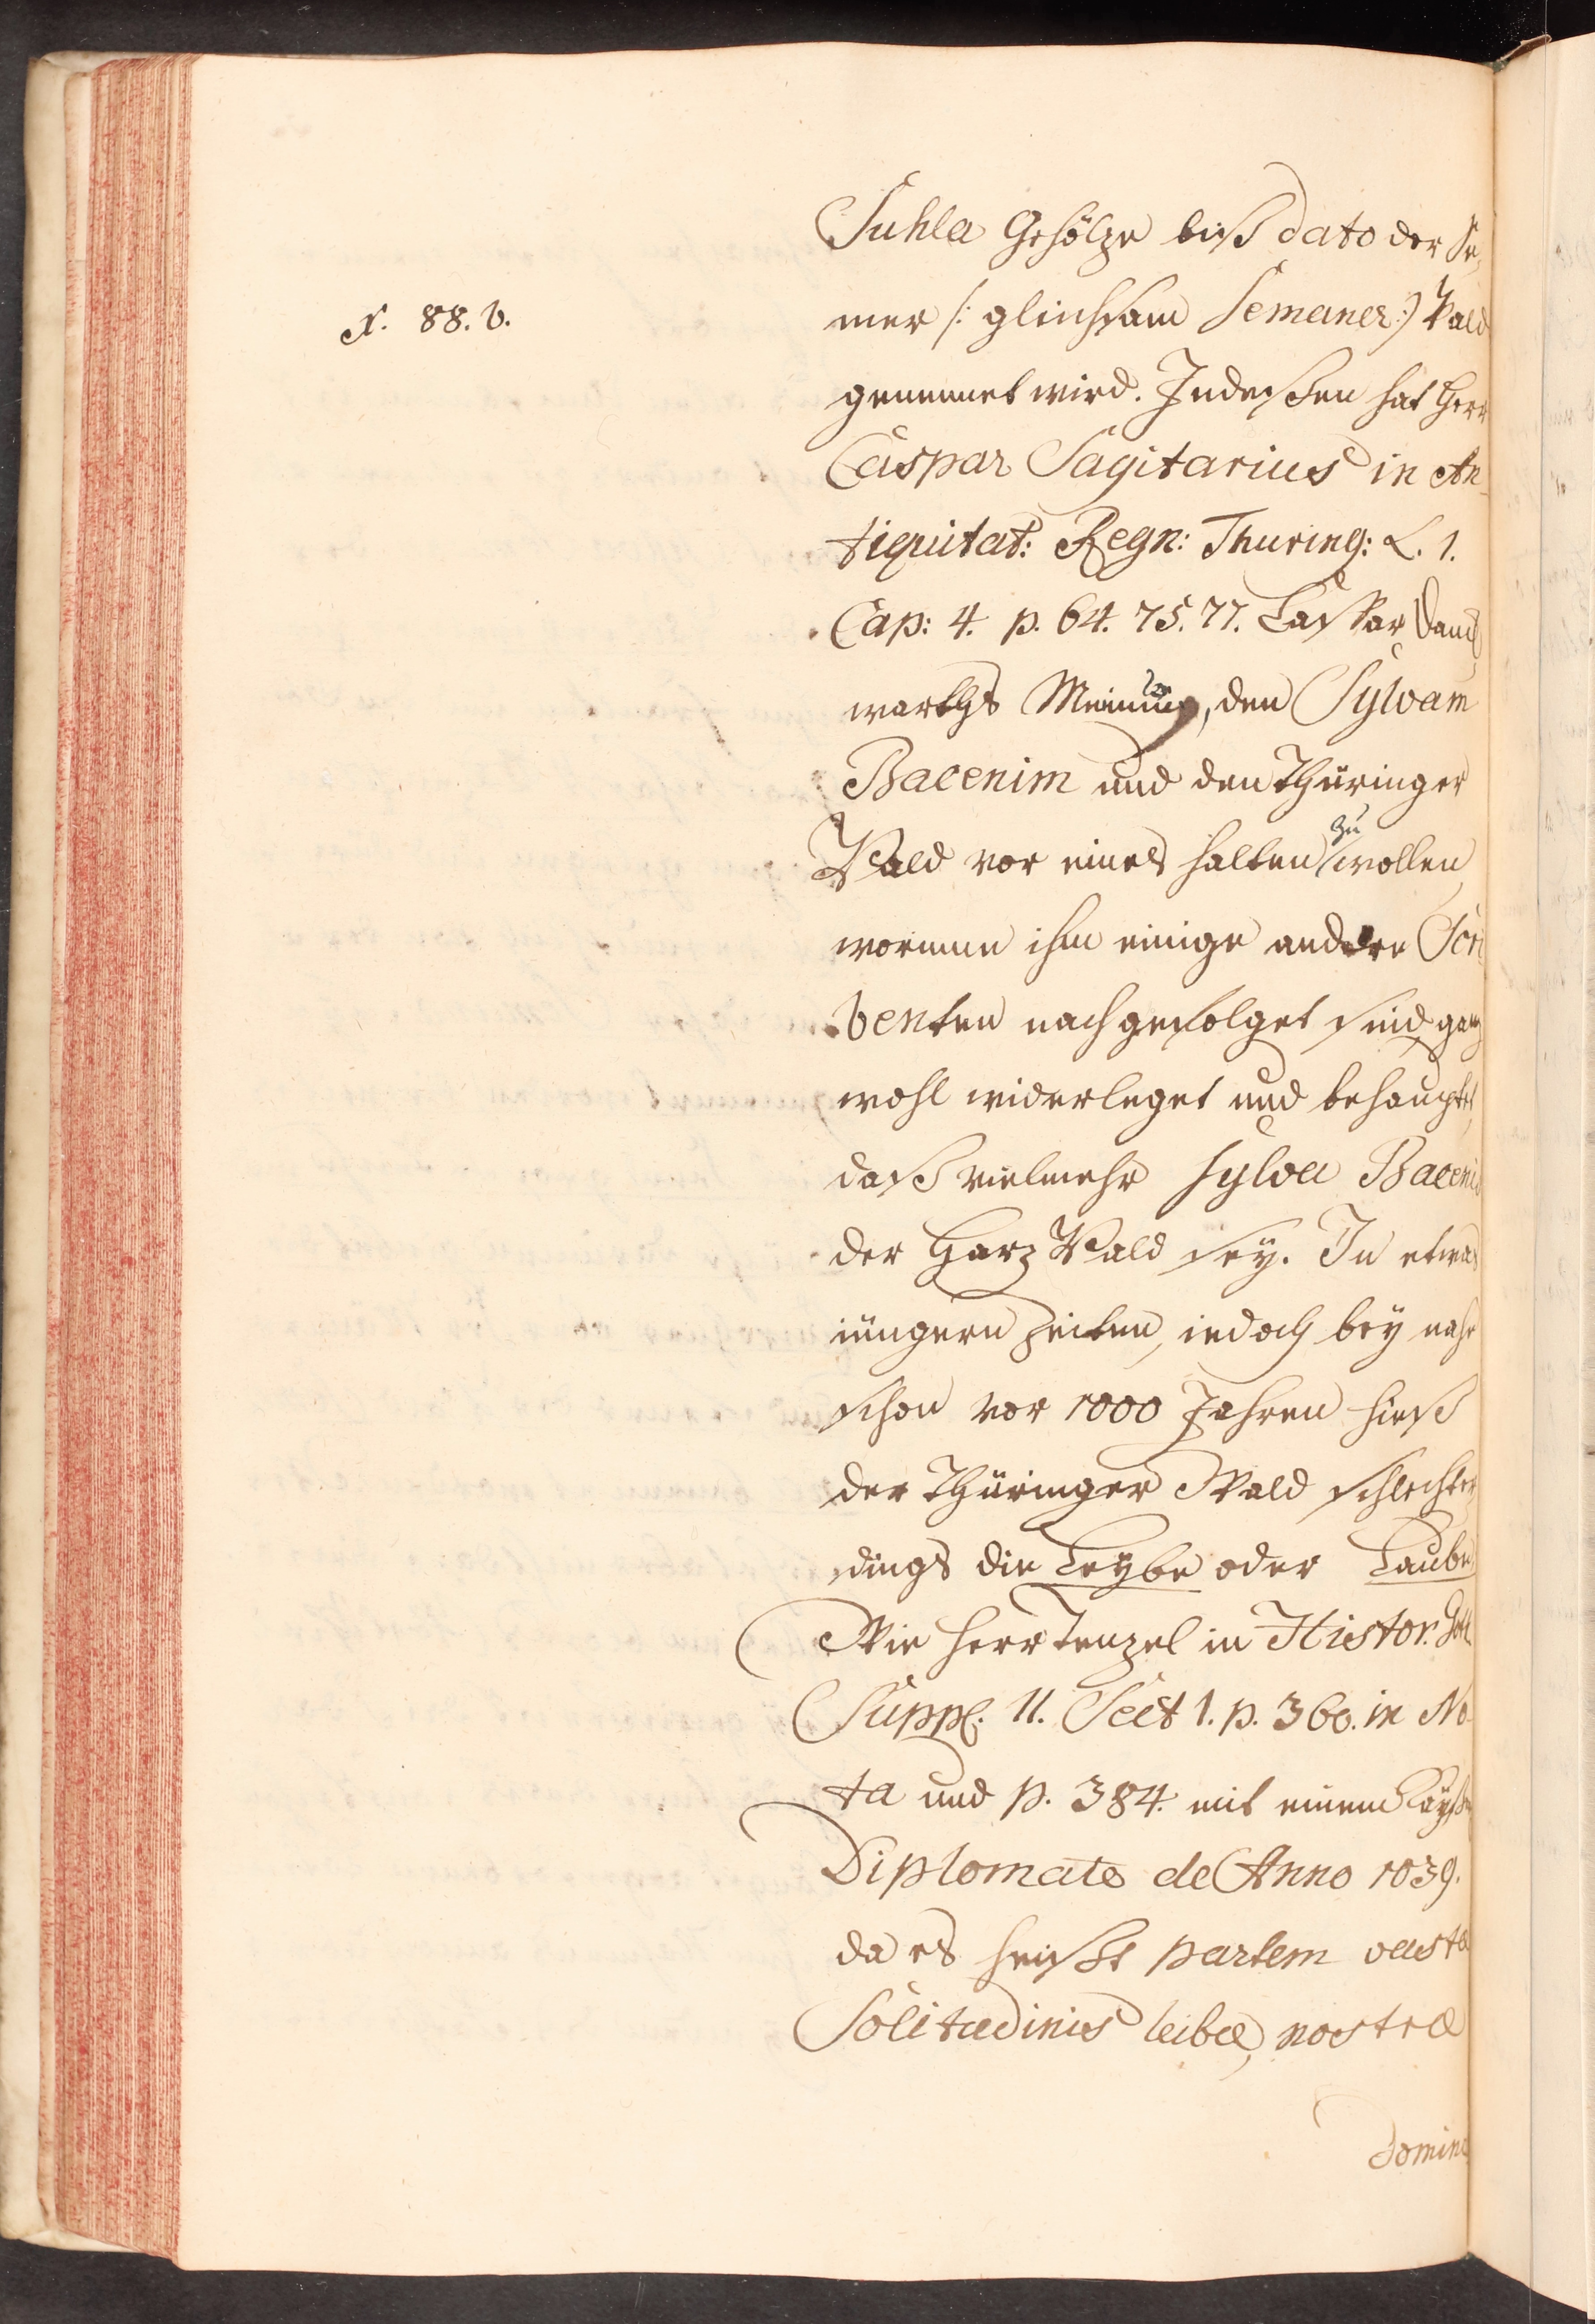 N. 88. b.
Suhla Gehölze biß dato der Se,
mer /: gleichsam Semaner :/ Wald
genennet wird. Indeßen hat Herr
Caspar Sagitarius in An-
tiquitat: Regn: Thuring: L. 1.
Cap: 4. p. 64. 75. 77. Caspar Dan
warths Meinung, den Sylvam
Bacenim und den Thüringer
Wald vor eines halten zu wollen,
worinne ihm einige andere Scri
benten nachgefolget sind, ganz
wohl widerleget und behauptet,
daß vielmehr Sylva Bacenis
der Harz Wald sey. In etwas
iüngern Zeiten, iedoch bey nahe
schon vor 1000 Jahren hieß
der Thüringer Wald schlechter
dings die Leybe oder Laube
Wie Herr Tenzel in Histor. Goth
Suppl. II. Sect 1. p. 360. in No
ta und p. 384. mit einem Kayß
Diplomate de Anno 1039.
da es heißt partem vastæ
Solitudinis leibæ, nostræ
domino